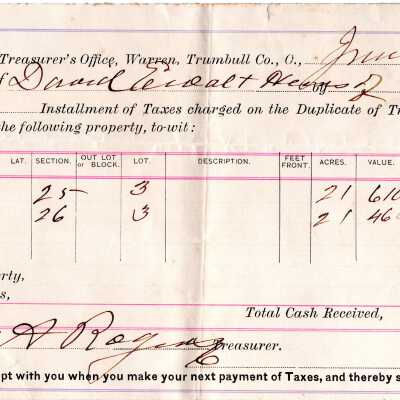 Treasurer's Office, Warren, Trumbull Co., O., June
of David Ewalt Henry
Installment of Taxes charged on the Duplicate of Tr
the following property, to-wit:
LAT. SECTION. OUT LOT or BLOCK. LOT. DESCRIPTION. FEET FRONT. ACRES. VALUE.
25 3 21 610
26 3 21 46
rty,
s,
Total Cash Received,
A Rogers Treasurer.
pt with you when you make your next payment of Taxes, and thereby s